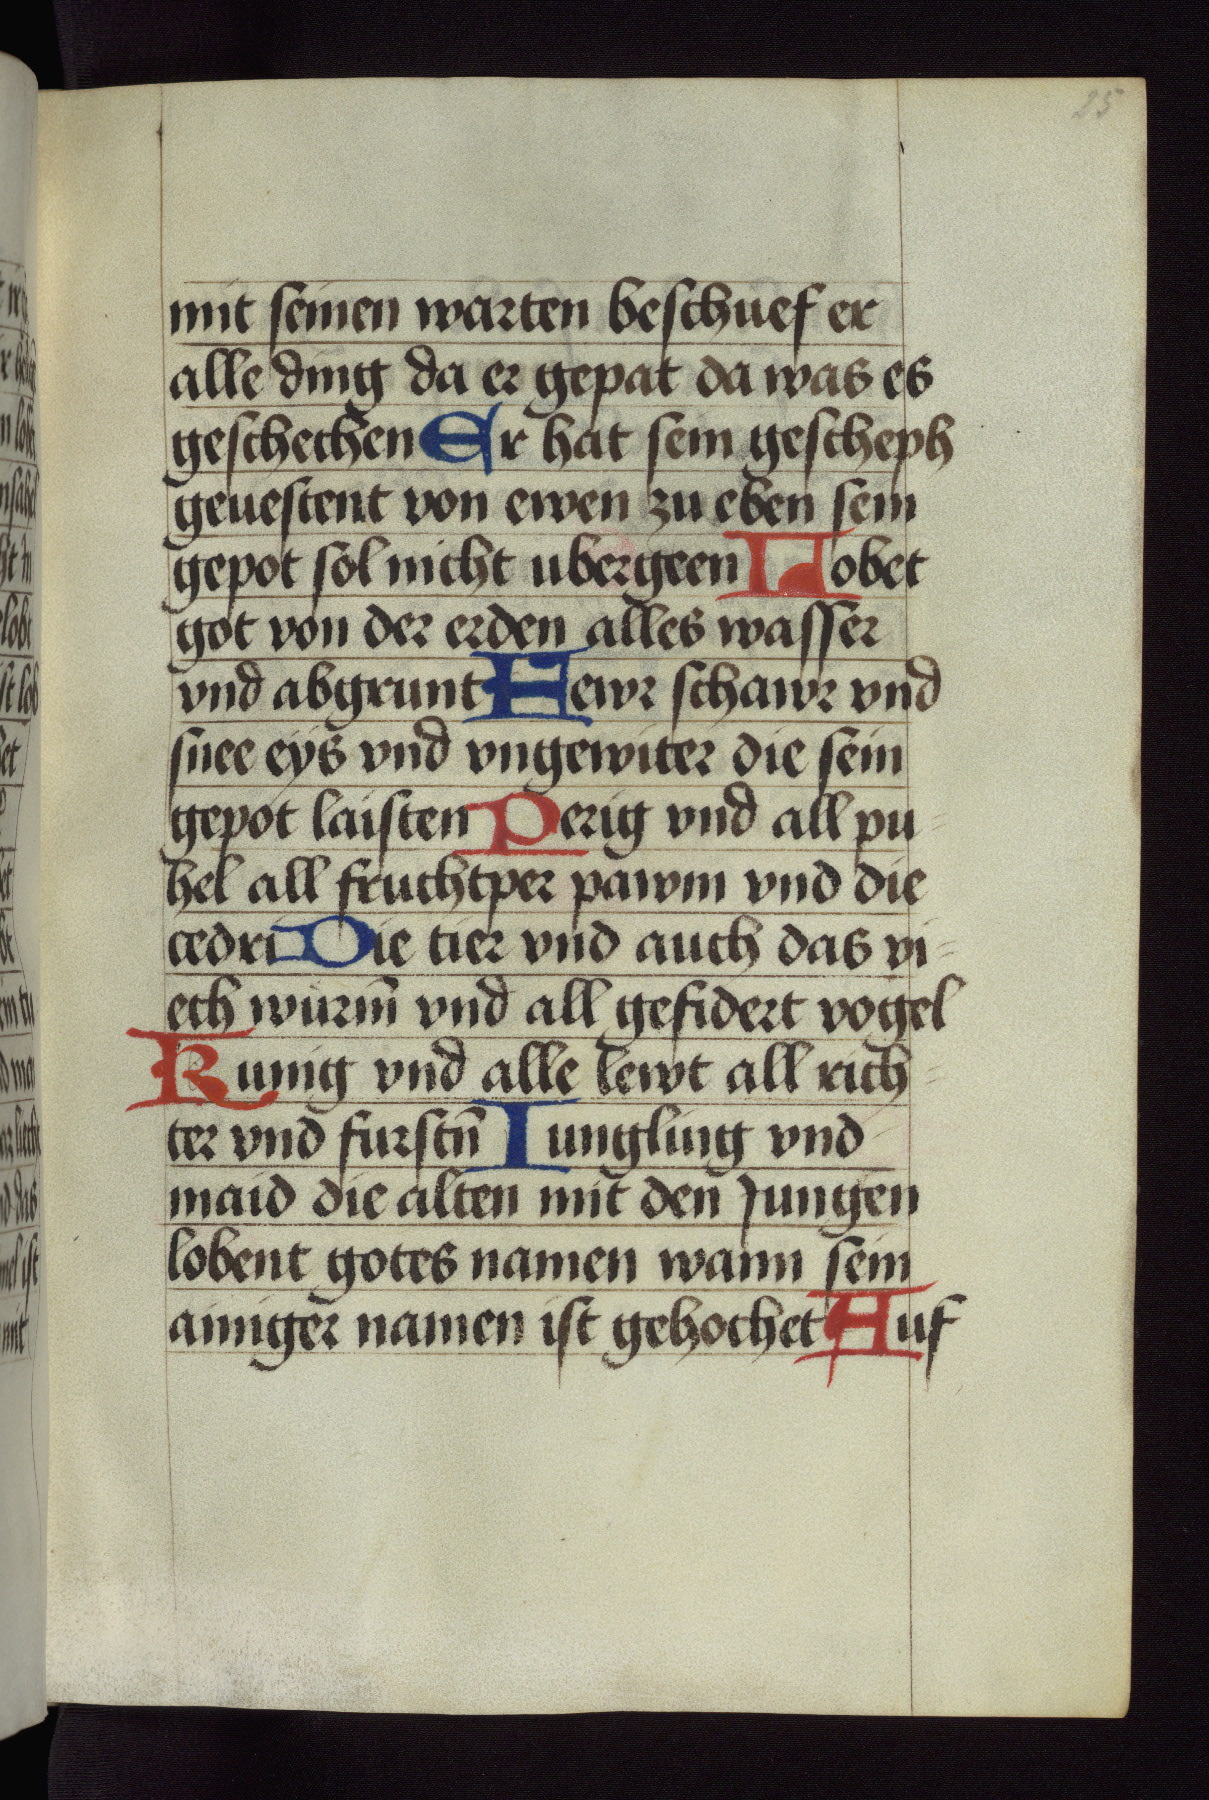 25
mit seinen warten beschuef er
alle ding da er gepat da was es
geschechen Er hat sein gescheph
geuestent von ewen zu eben sein
gepot sol nicht ubergeen Lobet
got von der erden alles wasser
vnd abgrunt Hewr schawr vnd
snee eÿs vnd vngewiter die sein
gepot laisten Perig vnd all pu-
hel all fruchtper pawm vnd die
cedri Die tier vnd auch das vi-
ech würm̄ vnd all gefidert vogel
Kunig vnd alle lewt all rich-
ter vnd furstn̄ Iungling vnd
maid die alten mit den Jungen
lobent gotes namen wann sein
ainiger namen ist gehochet Auf